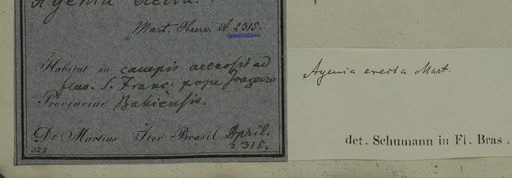 Ayenia erecta.
Mart. Observ. A 2315.
Habitat in campis arenosis ad
fluv. S. Franc. prope Joazeiro
Provinciae Bahiensis.
Dr Martius Iter Brasil. April.
2315.
Ayenia erecta Mart.
det. Schumann in Fl. Bras.